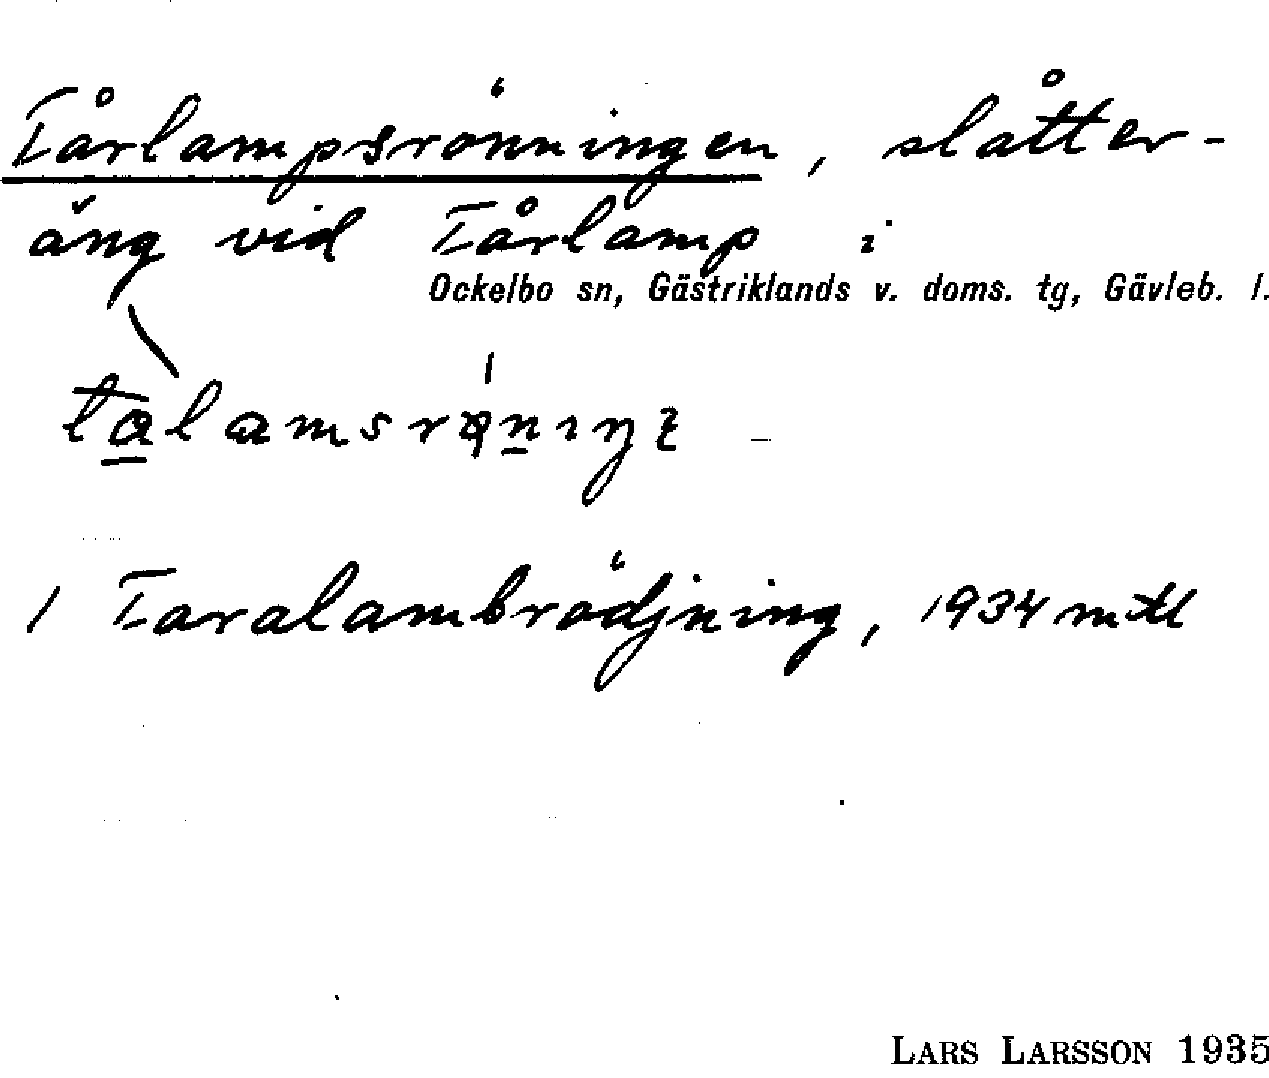 Tårlampsrönningen, slåtter-
äng vid Tårlamp i
Ockelbo sn, Gästriklands v. doms. tg, Gävleb. l.
1 Taralambrödjning, 1934 mtl
LARS LARSSON 1935